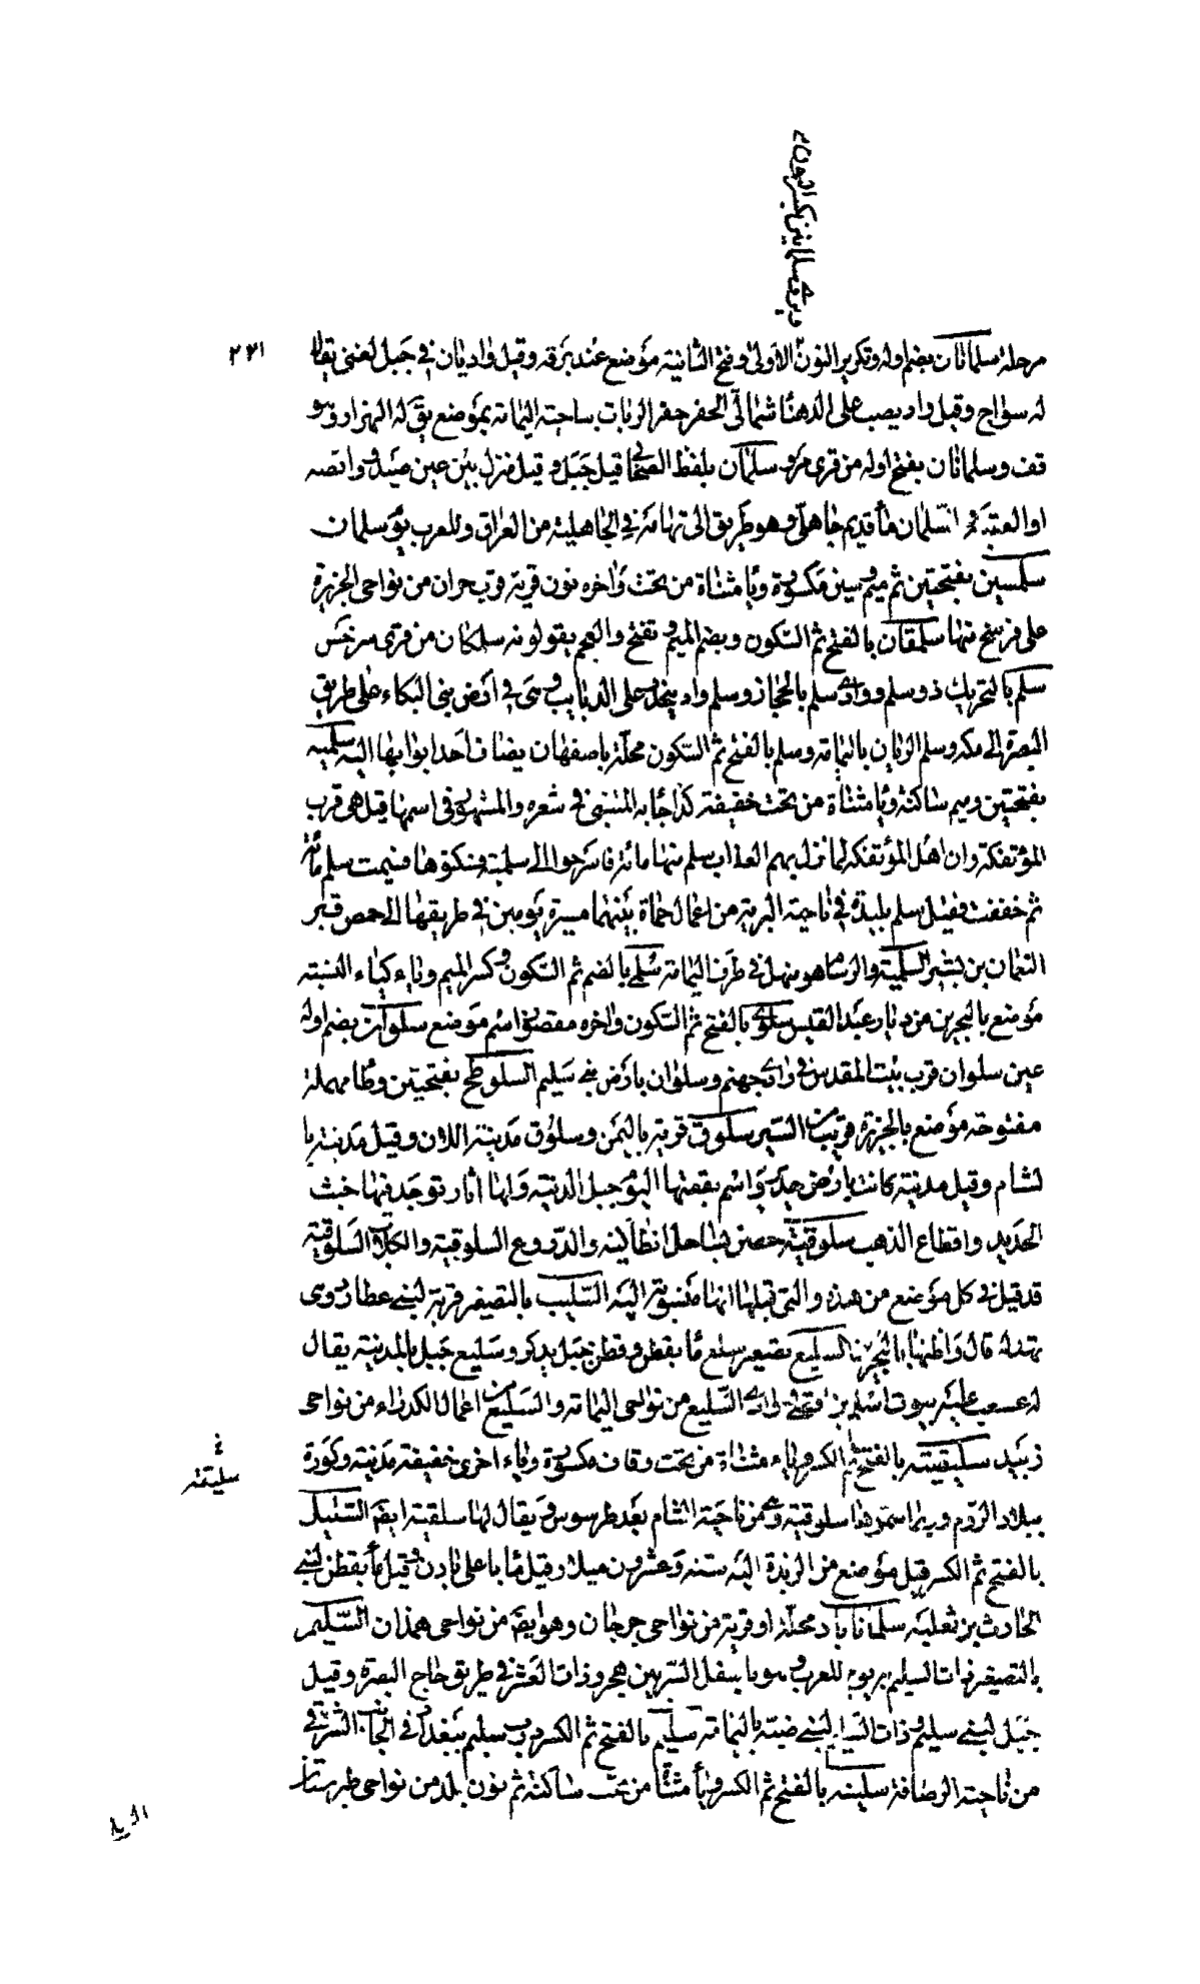 ٢٢١
مرحلة سلمانان بضم اوله وتكرير النون الاولى وفتح الثانية موضع عند برقه وقيل واديان في جبل لغنى يقال
له سواج وقيل واد يصب على الدهنا شمالى الحفر حفر الرباب بناحية اليمامة بموضع يق له الهرار وهو
قف وسلمانان بفتح اوله من قرى مرو سلمان بلفظ الصحابي قيل جبل وقيل منزل بين عين صيد وواقصه
او العقبة السلمان ماء قديم جاهلى وهو طريق الى تهامة في الجاهلية من العراق وللعرب يوم سلمان
سلمسين بفتحتين ثم ميم وسين مكسورة ويا مثناة من تحت واخره نون قرية قرب حران من نواحى الجزيرة
على فرسخ منها سلمقان بالفتح ثم السكون وبضم الميم وتفتح والعجم يقولونه سلمكان من قرى سرخس
سلم بالتحريك ذو سلم ووادى سلم بالحجاز وسلم واد ينحدر على الذنايب في ارض بنى البكاء على طريق
البصرة الى مكه وسلم الريان باليمامة وسلم بالفتح ثم السكون محلة باصفهان يضاف احد ابوابها اليه سلمية
بفتحتين وميم ساكنة ويا مثناة من تحت خفيفة كذا جا به المتنبى في شعره والمشهور في اسمها قيل هى قرب
المؤتفكة وان اهل المؤتفكة لما نزل بهم العذاب سلم منها مائة فانتزحوا الى سلمية وسكنوها فسميت سلم مائة
ثم خففت وقيل سلم بليدة في ناحية البرية من اعمال حماة بينهما مسيرة يومين في طريقها الى حمص قبر
النعمان بن بشير السلمية والرسا هو منهل في طرف اليمامة سلمى بالضم ثم السكون وكسر الميم وياء كياء النسبة
موضع بالبحرين من ديار عبد القيس سلوى بالفتح ثم السكون واخره مقصور اسم موضع سلوان بضم اوله
عين سلوان قرب بيت المقدس في وادى جهنم وسلوان بارض بنى سليم السلوطح بفتحتين وطا مهملة
مفتوحة موضع بالجزيرة قريب من البشر سلوق قرية باليمن وسلوق مدينة اللان وقيل مدينة با
لشام وقيل مدينة كانت بارض جديد واسم بقعتها اليوم جبل الدنية ولها اثار توجد فيها خبث
الحديد واقطاع الذهب سلوقية حصن بساحل انطاكية والدروع السلوقية والكلاب السلوقية
قد قيل في كل موضع من هذه والتى قبلها انها منسوبة اليه السليب بالتصغير قرية لبنى عطارد وى
بهدله قال واظنها بالبحرين السليع تصغير سلع ما بقطن وقطن جبل بدكر وسليع جبل بالمدينة يقال
له عسعب عليه بيوت اسلم بن وفى وادى السليع من نواحى اليمامة والسليع من اعمال الكدراء من نواحى
زبيد سليقية بالفتح ثم الكسر وياء مثناة من تحت وقاف مكسورة وياء اخرى خفيفة مدينة وكورة
سليقة
ببلاد الروم وربما سموها سلوقية وهى من ناحية الشام بعد طرسوس ويقال لها سلقية ايضا السليل
بالفتح ثم الكسر قيل موضع من الربذة اليه ستة وعشرون ميلا وقيل ما باعلى ثادق وقيل ما بقطن لبنى
الحارث بن ثعلبه سلماناباد محلة او قرية من نواحى جرجان وهو ايضا من نواحى همذان السليم
بالتصغير ذات السليم يوم للعرب وهو باسفل السر بين هجر وذات العشر في طريق حاج البصرة وقيل
جبل لبنى سليم وذات السليم لبنى ضبة باليمامة سليم بالفتح ثم الكسر درب سليم ببغداد في الجانب الشرقى
من ناحية الرصافة سلينه بالفتح ثم الكسر ويا مثناة من تحت ساكنة ثم نون بلد من نواحى طبرستان